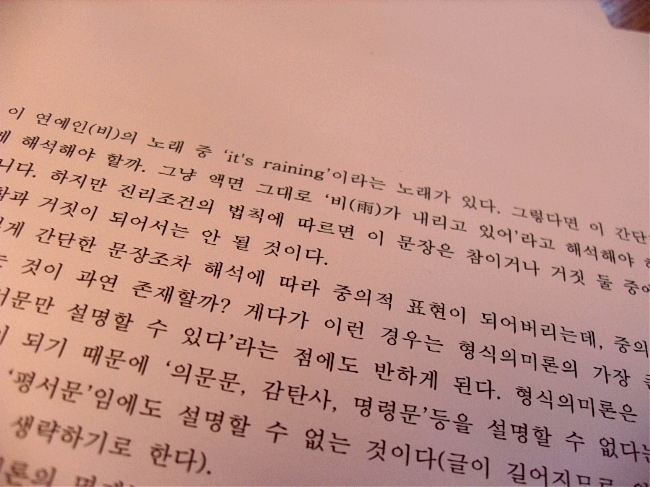 이 연예인(비)의 노래 중 'it's raining'이라는 노래가 있다. 그렇다면 이 간단
해석해야 할까. 그냥 액면 그대로 '비(雨)가 내리고 있어'라고 해석해야
니다. 하지만 진리조건의 법칙에 따르면 이 문장은 참이거나 거짓 둘 중에
과 거짓이 되어서는 안 될 것이다.
게 간단한 문장조차 해석에 따라 중의적 표현이 되어버리는데, 중의
는 것이 과연 존재할까? 게다가 이런 경우는 형식의미론의 가장
서문만 설명할 수 있다'라는 점에도 반하게 된다. 형식의미론은
이 되기 때문에 '의문문, 감탄사, 명령문'등을 설명할 수 없다는
'평서문'임에도 설명할 수 없는 것이다(글이 길어지므로
생략하기로 한다).